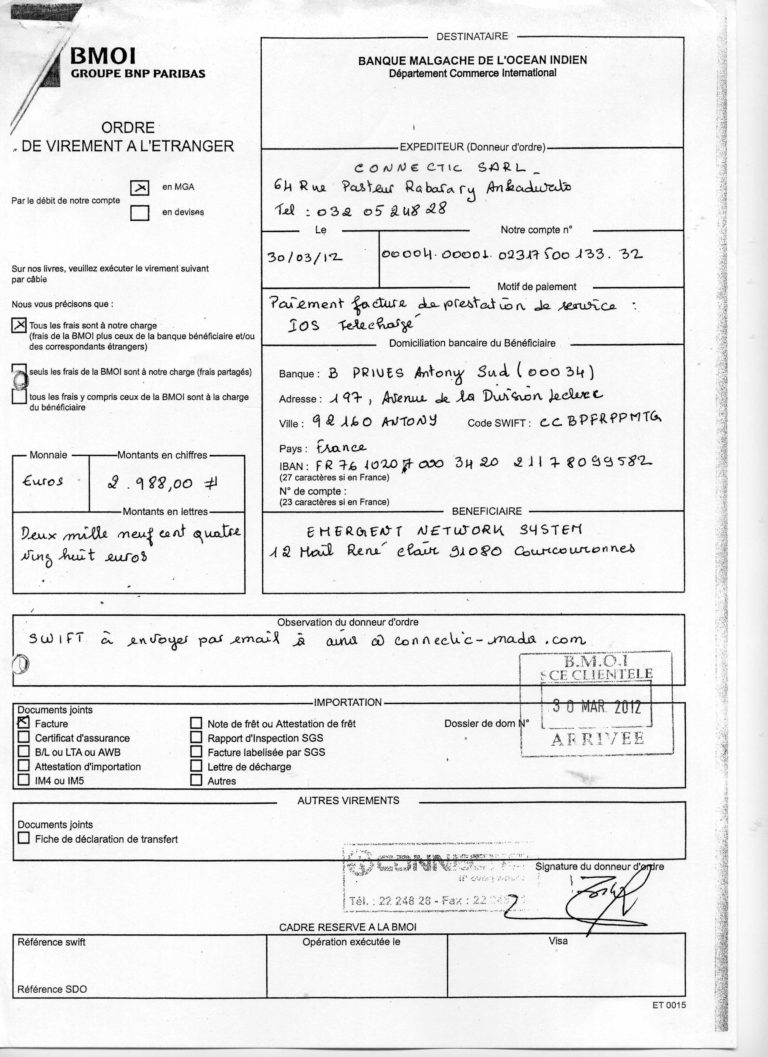 BMOI
GROUPE BNP PARIBAS
ORDRE
DE VIREMENT A L'ETRANGER
Par le débit de notre compte
en MGA
en devises
Sur nos livres, veuillez exécuter le virement suivant
par câble
Nous vous précisons que :
Tous les frais sont à notre charge
(frais de la BMOI plus ceux de la banque bénéficiaire et/ou
des correspondants étrangers)
seuls les frais de la BMOI sont à notre charge (frais partagés)
tous les frais y compris ceux de la BMOI sont à la charge
du bénéficiaire
Monnaie
Montants en chiffres
Euros
2.988,00 #
Montants en lettres
Deux mille neuf cent quatre
ving huit euros
DESTINATAIRE
BANQUE MALGACHE DE L'OCEAN INDIEN
Département Commerce International
EXPEDITEUR (Donneur d'ordre)
CONNECTIC SARL
64 Rue Pasteur Rabarary
Tel : 032 05 248 28
Le
Notre compte n°
30/03/12
00004.00001.02317500133.32
Motif de paiement
Paiement facture de prestation de service :
IOS Telechargé
Domiciliation bancaire du Bénéficiaire
Banque : B PRIVES Antony Sud (00034)
Adresse : 197, Avenue de la Division Leclerc
Ville : 92160 ANTONY Code SWIFT : CCBPFRPPMTG
Pays : France
IBAN : FR76 10207 000 3420 21178099582
(27 caractères si en France)
N° de compte :
(23 caractères si en France)
BENEFICIAIRE
EMERGENT NETWORK SYSTEM
12 Mail René Clair 91080 Courcouronnes
Observation du donneur d'ordre
SWIFT à envoyer par email à aina @ connectic-mada.com
B.M.O.I
SCE CLIENTELE
30 MAR. 2012
ARRIVEE
IMPORTATION
Documents joints
Facture
Certificat d'assurance
B/L ou LTA ou AWB
Attestation d'importation
IM4 ou IM5
Note de frêt ou Attestation de frêt
Rapport d'Inspection SGS
Facture labelisée par SGS
Lettre de décharge
Autres
Dossier de dom N°
AUTRES VIREMENTS
Documents joints
Fiche de déclaration de transfert
Tél. : 22 248 28 - Fax : 22
Signature du donneur d'ordre
CADRE RESERVE A LA BMOI
Référence swift
Opération exécutée le
Visa
Référence SDO
ET 0015